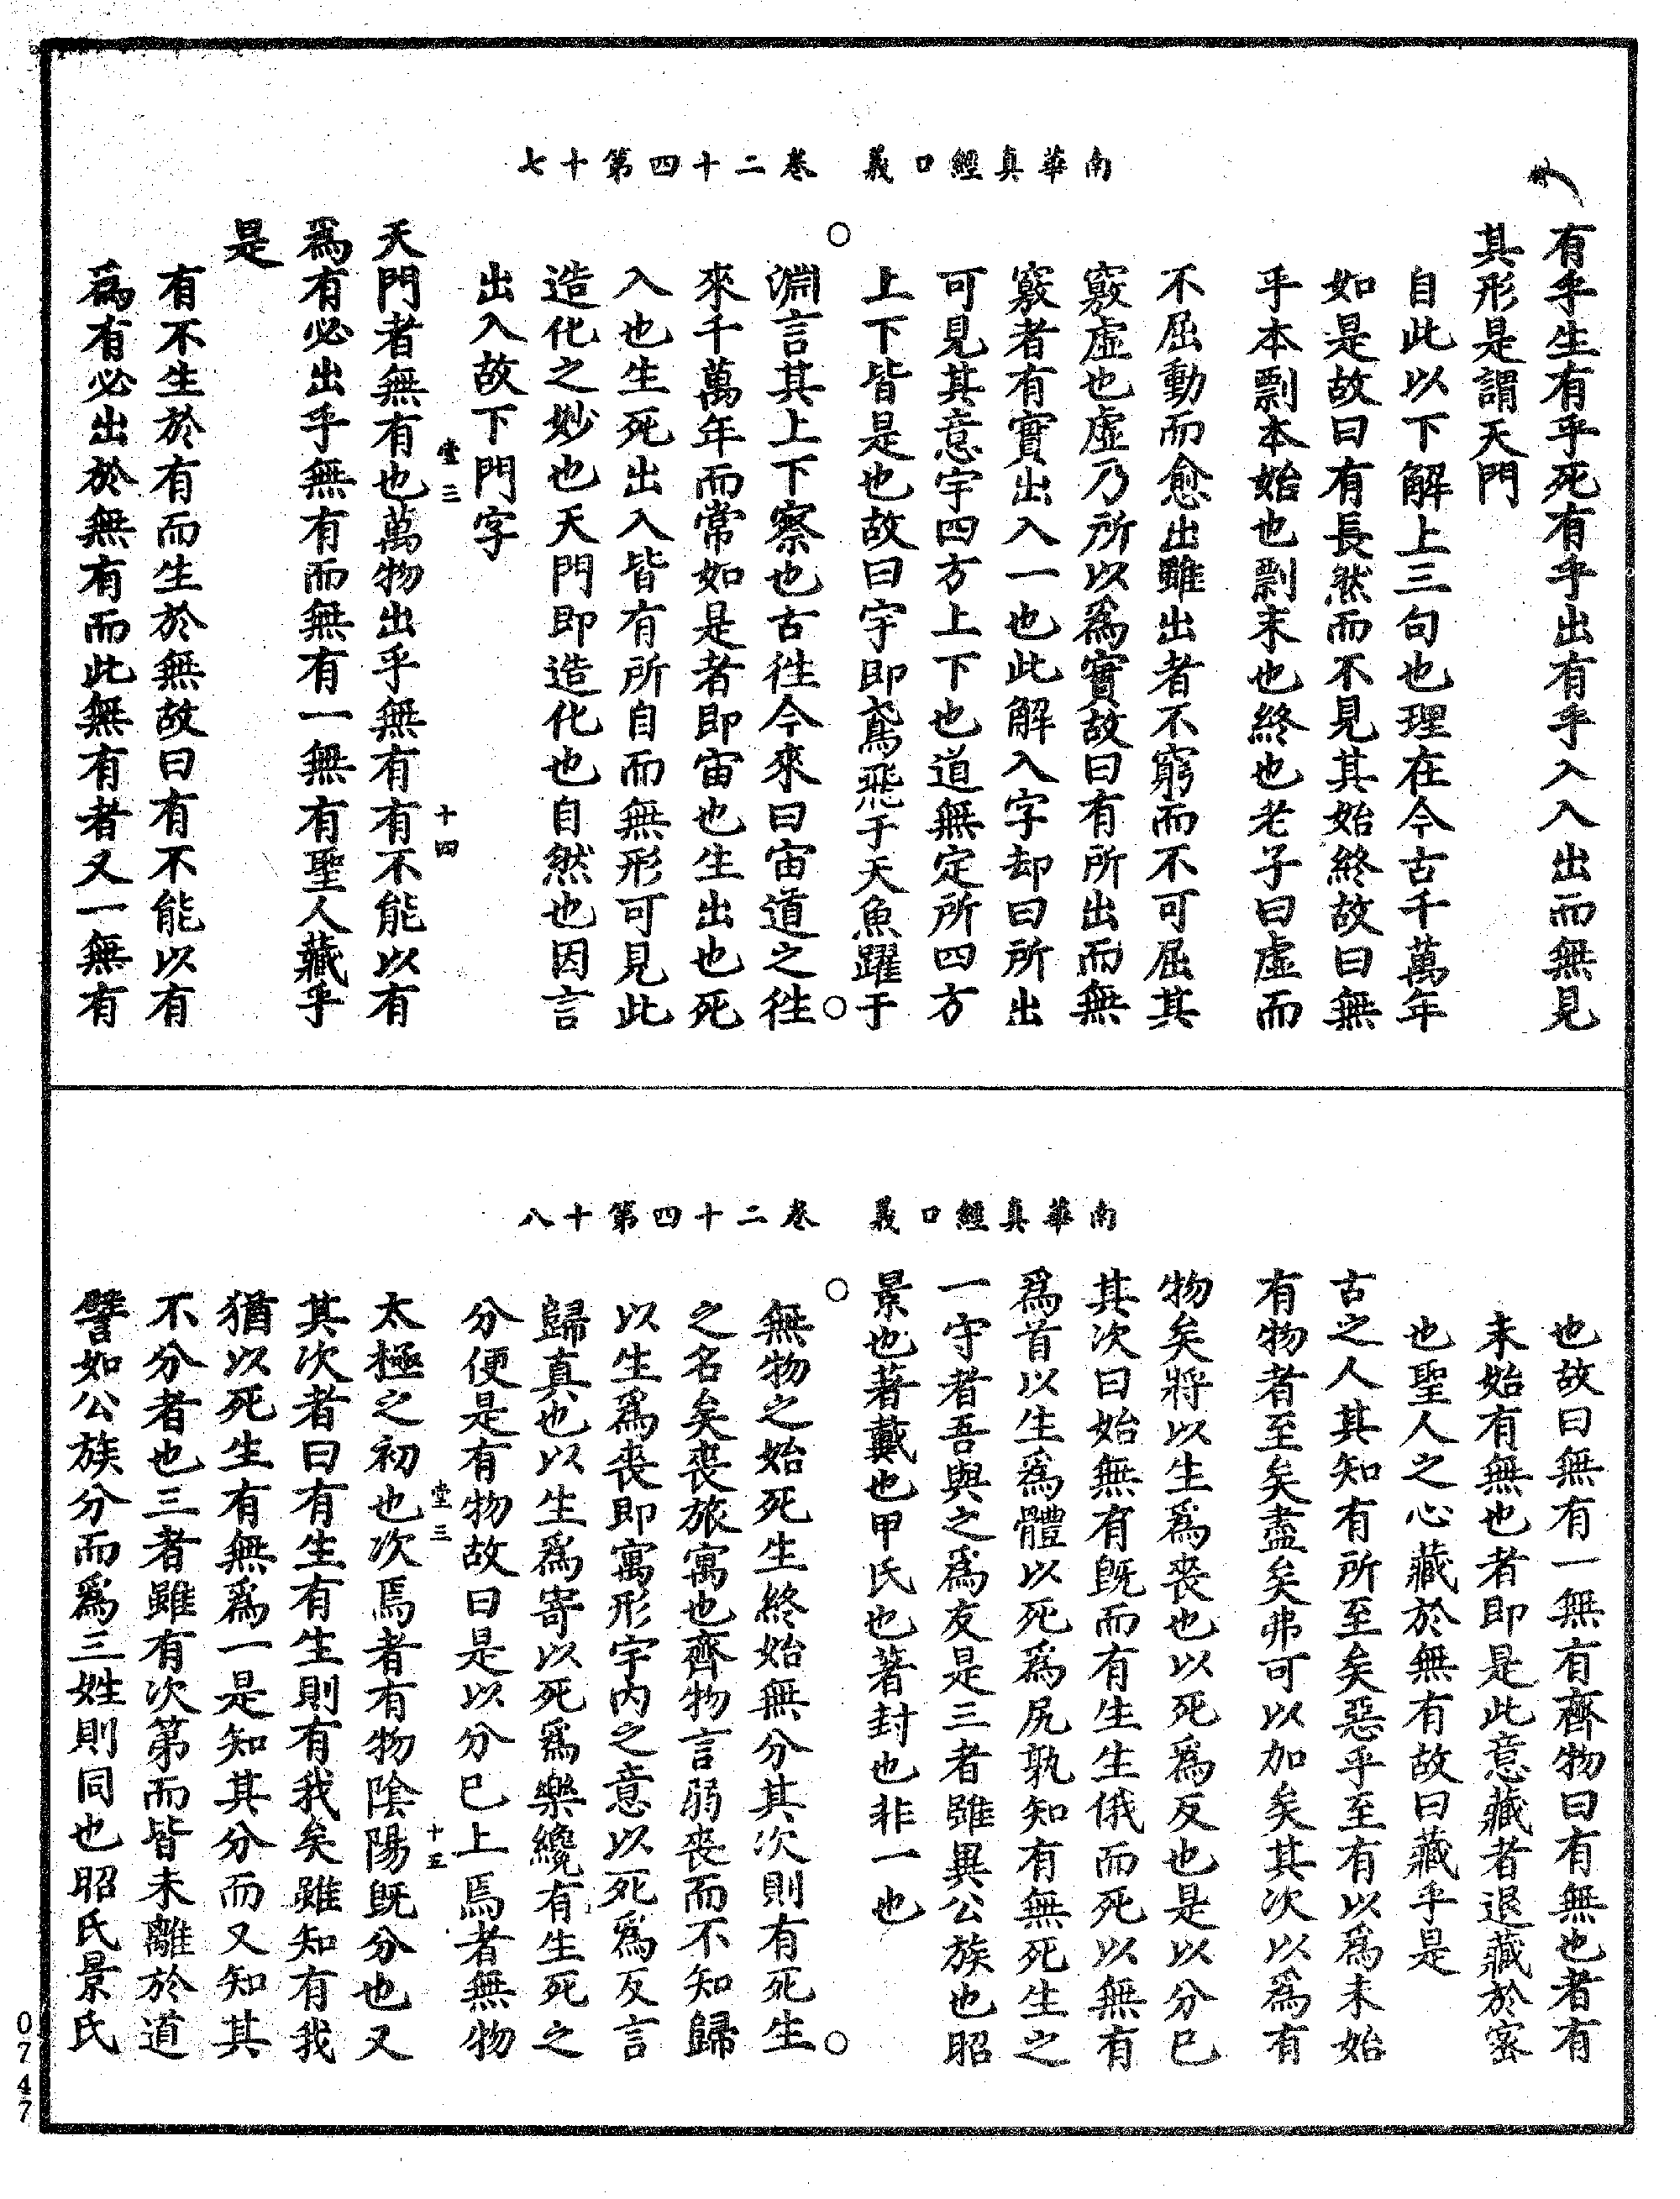 南華真經口義　卷二十四第十七
有乎生有乎死有乎出有乎入入出而無見
其形是謂天門
自此以下解上三句也理在今古千萬年
如是故曰有長然而不見其始終故曰無
乎本剽本始也剽末也終也老子曰虛而
不屈動而愈出雖出者不窮而不可屈其
竅虛也虛乃所以為實故曰有所出而無
竅者有實出入一也此解入字却曰所出
可見其意宇四方上下也道無定所四方
上下皆是也故曰宇即鳶飛于天魚躍于
淵言其上下察也古徃今來曰宙道之徃
來千萬年而常如是者即宙也生出也死
入也生死出入皆有所自而無形可見此
造化之妙也天門即造化也自然也因言
出入故下門字
堂三　十四
天門者無有也萬物出乎無有有不能以有
為有必出乎無有而無有一無有聖人藏乎
是
有不生於有而生於無故曰有不能以有
為有必出於無有而此無有者又一無有
南華真經口義　卷二十四第十八
也故曰無有一無有齊物曰有無也者有
未始有無也者即是此意藏者退藏於密
也聖人之心藏於無有故曰藏乎是
古之人其知有所至矣惡乎至有以為未始
有物者至矣盡矣弗可以加矣其次以為有
物矣將以生為喪也以死為反也是以分已
其次曰始無有既而有生生俄而死以無有
為首以生為體以死為尻孰知有無死生之
一守者吾與之為友是三者雖異公族也昭
景也著戴也甲氏也著封也非一也
無物之始死生終始無分其次則有死生
之名矣喪旅寓也齊物言弱喪而不知歸
以生為喪即寓形宇內之意以死為反言
歸真也以生為寄以死為樂纔有生死之
分便是有物故曰是以分已上焉者無物
堂三　十五
太極之初也次焉者有物陰陽既分也又
其次者曰有生有生則有我矣雖知有我
猶以死生有無為一是知其分而又知其
不分者也三者雖有次第而皆未離於道
譬如公族分而為三姓則同也昭氏景氏
0747